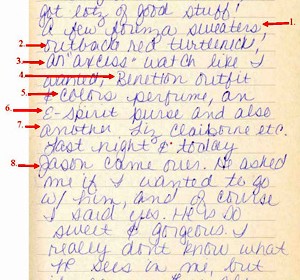 got lotz of good stuff!
A few sweaters, 1.
2. outback red turtleneck,
3. an "axcess" watch like I
4. wanted, Benetton outfit
5. & colors perfume, an
6. E-spirit purse and also
7. another Liz Claiborne etc.
Last night & today
8. Jason came over. He asked
me if I wanted to go
w/ him, and of course
I said yes. He is so
sweet & gorgeous. I
really don't know what
he sees in me but